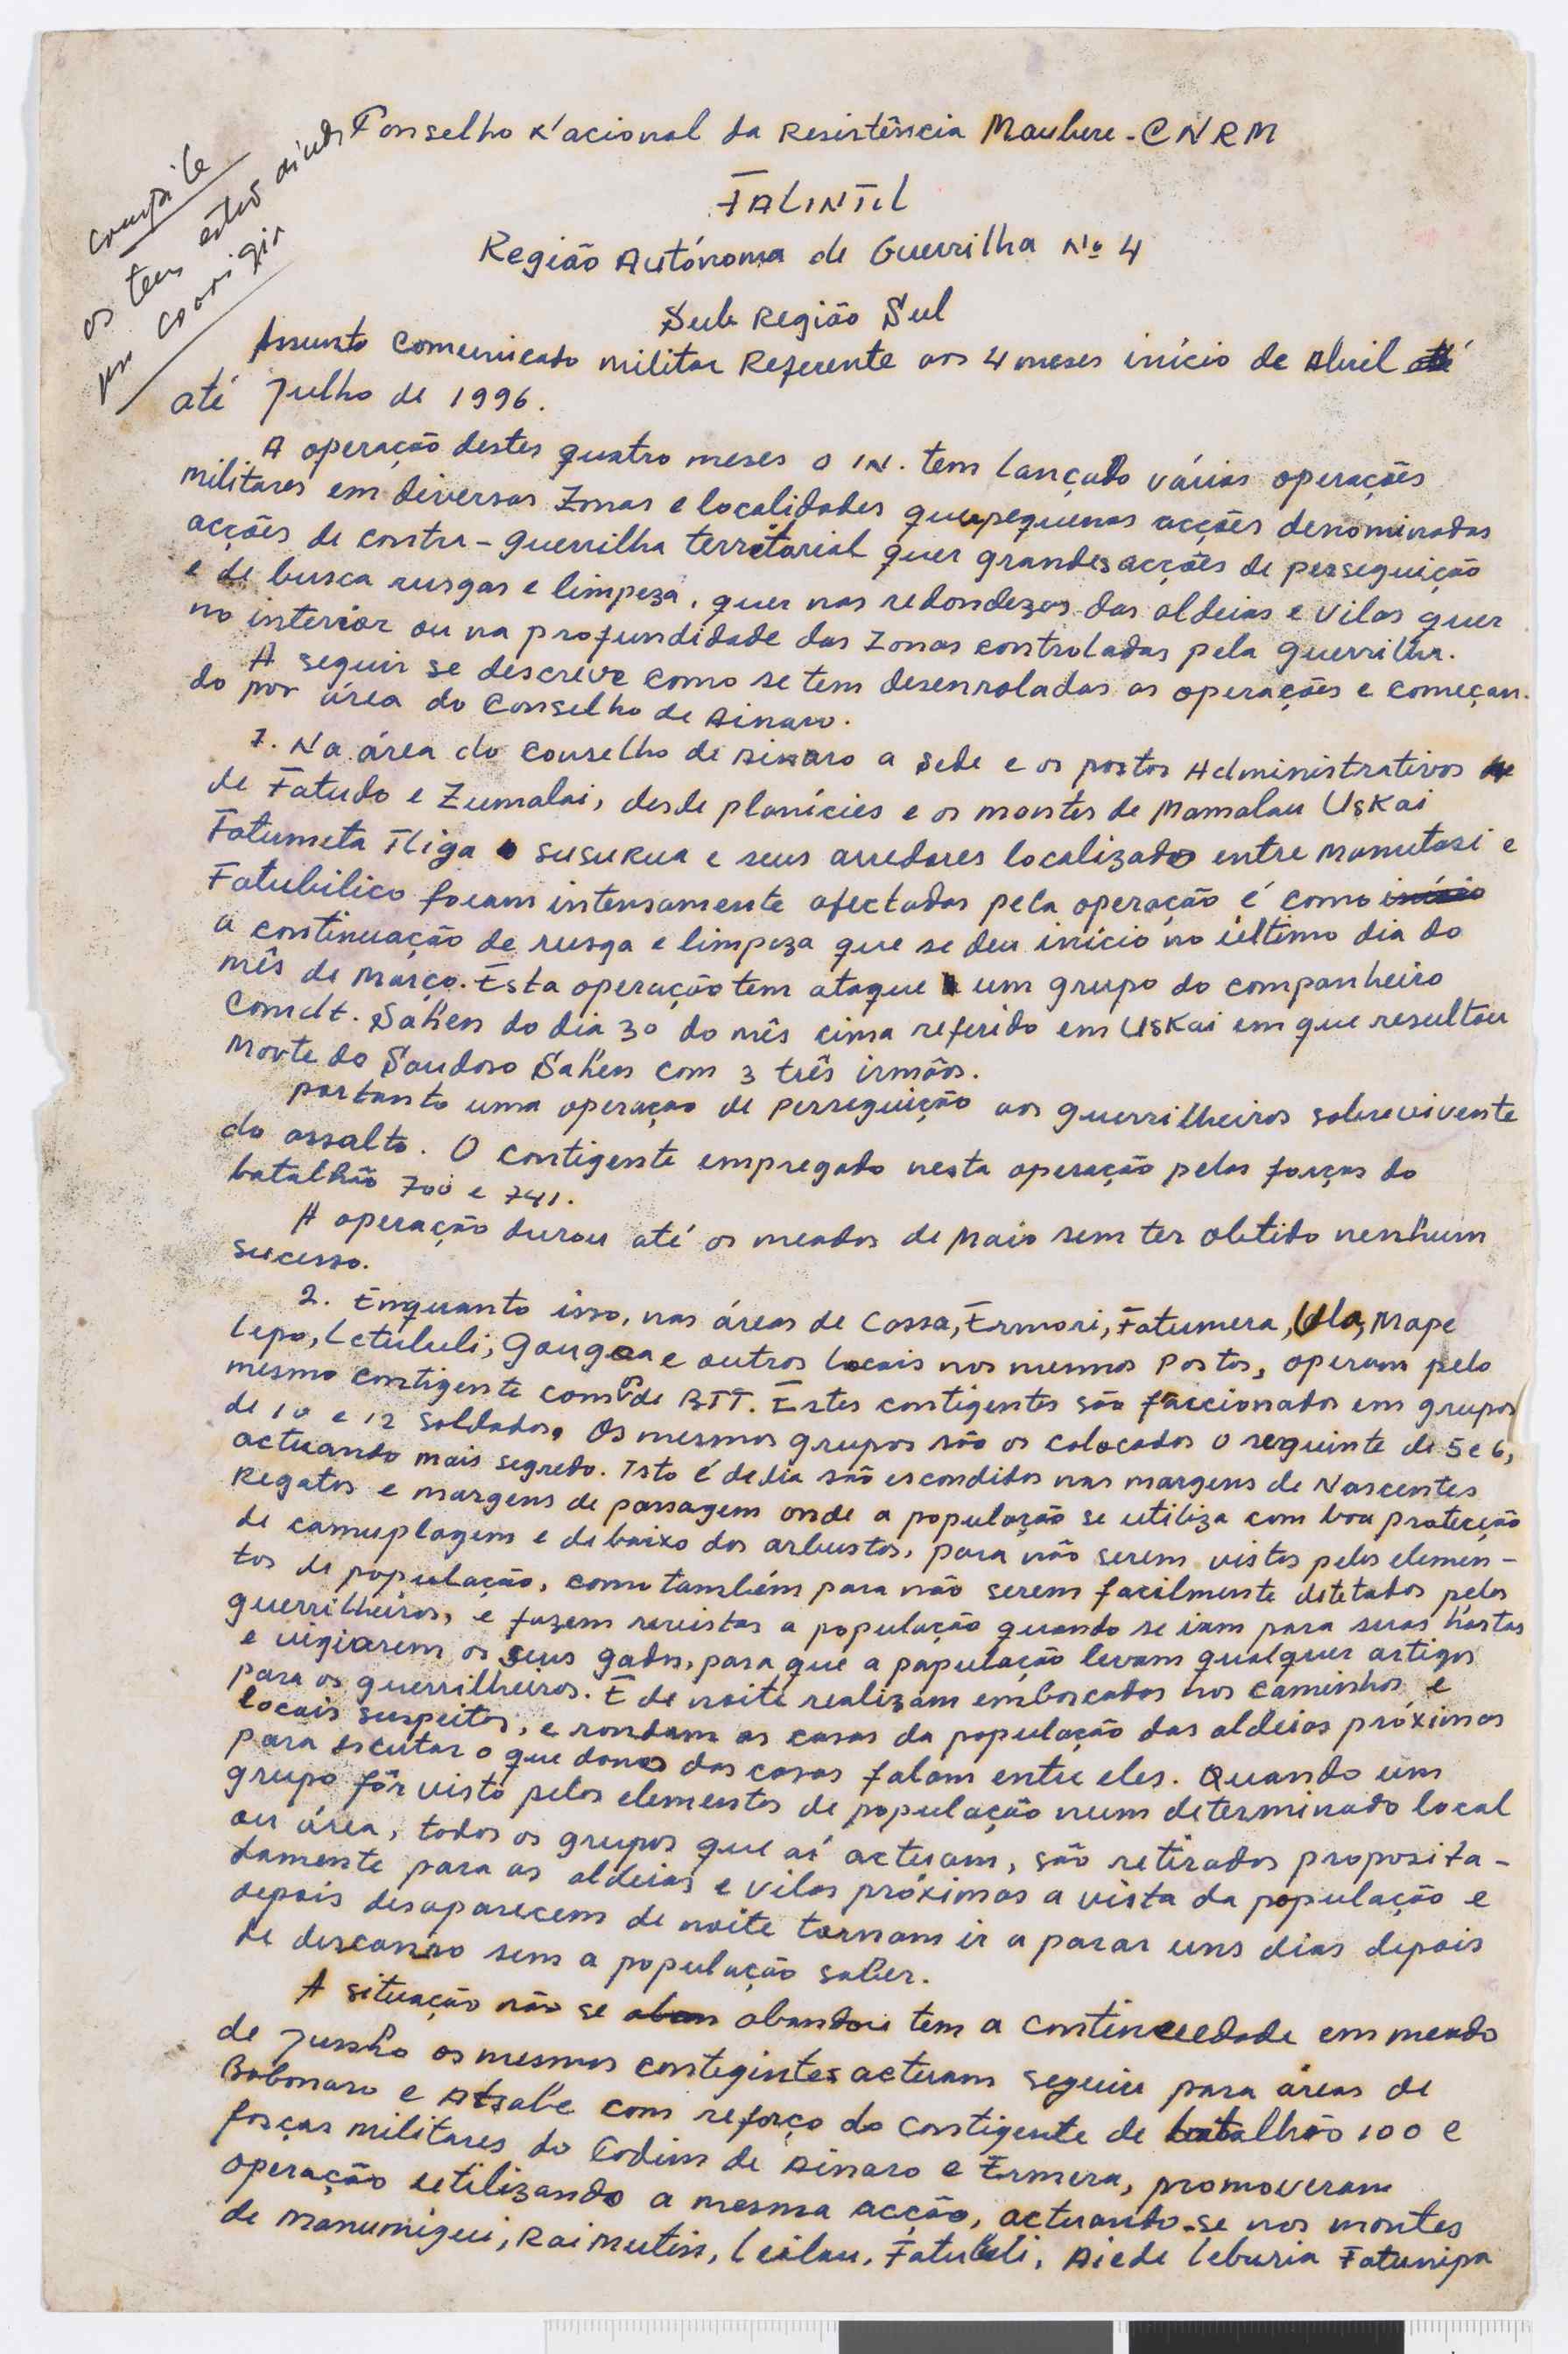 compile
os teus estão ainda
por corrigir
Conselho Nacional da Resistência Maubere - CNRM
FALINTIL
Região Autónoma de Guerrilha Nº 4
Sub Região Sul
Assunto Comunicado militar Referente aos 4 meses início de Abril até
até Julho de 1996.
A operação destes quatro meses o IN. tem lançado várias operações
militares em diversas Zonas e localidades quer pequenas acções denominadas
acções de contra-guerrilha territorial quer grandes acções de perseguição
e de busca rusgas e limpeza, quer nas redondezas das aldeias e vilas quer
no interior ou na profundidade das Zonas controladas pela guerrilha.
A seguir se descreve como se tem desenroladas as operações e começan-
do por área do Conselho de Ainaro.
1. Na área do conselho de Ainaro a Sede e os postos Administrativos de
de Fatudo e Zumalai, desde planícies e os montes de Mamalau Uskai
Fatumeta Tliga o susurua e seus arredores localizados entre Manutasi e
Fatubilico foram intensamente afectadas pela operação é como início
a continuação de rusga e limpeza que se deu início no último dia do
mês de março. Esta operação tem ataque a um grupo do companheiro
Comdt. Sahen do dia 30 do mês cima referido em Uskai em que resultou
morte do Saudoso Sahen com 3 três irmãos.
portanto uma operação de perreguição aos guerrilheiros sobrevivente
do assalto. O contigente empregado nesta operação pelas forças do
batalhão 700 e 741.
A operação durou até os meados de Maio sem ter obtido nenhum
sucesso.
2. Enquanto isso, nas áreas de Cassa, Ermori, Fatumera, Lela, Mape
Lepo, Letululi, Gougoa e outros locais nos mesmos Postos, operam pelo
mesmo contigente com os de BTT. Estes contigentes são faccionados em grupos
de 10 e 12 soldados. Os mesmos grupos são os colocados o serguinte de 5 e 6,
actuando mais segredo. Isto é de dia são escondidos nas margens de Nascentes
Regatos e margens de passagem onde a população se utiliza com boa protecção
de camuplagem e debaixo dos arbustos, para não serem vistos pelos elemen-
tos de população, como também para não serem facilmente ditetados pelos
guerrilheiros, e fazem revistas a população quando se iam para suas hortas
e vigiarem os seus gados, para que a papulação levam qualquer artigos
para os guerrilheiros. E de noite realizam emboscadas nos caminhos e
locais suspeitos, e rondam as casas da população das aldeias próximas
para escutar o que donos das casas falam entre eles. Quando um
grupo fôr visto pelos elementos de população num determinado local
ou área, todos os grupos que aí actuam, são retirados proposita-
damente para as aldeias e vilas próximas a vista da população e
depois desaparecem de noite tornam ir a parar uns dias depois
de descanso sem a população saber.
A situação não se aban abandou tem a continuedade em meado
de Junho os mesmos contegintes acturam seguiu para áreas de
Bobonaro e Atsabe com reforço do contigente de batalhão 100 e
forças militares do Codim de Ainaro e Ermera, promoveram
operação utilizando a mesma acção, actuando-se nos montes
de Manumigui, Raimutin, Leilau, Fatubeli, Aiede Leburia Fatunipa